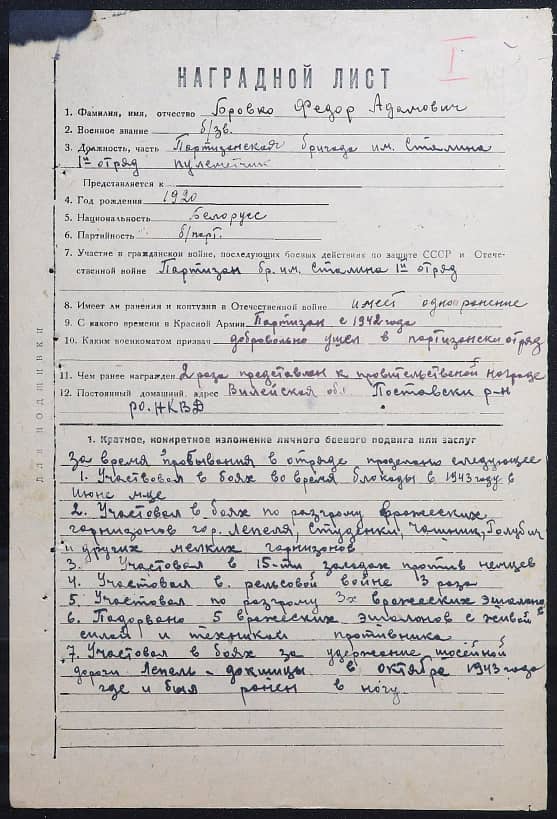 I
НАГРАДНОЙ ЛИСТ
1. Фамилия, имя, отчество Боровко Федор Адамович
2. Военное звание б/зв.
3. Должность, часть Партизанская бригада им. Сталина
1ый отряд пулеметчик
Представляется к
4. Год рождения 1920
5. Национальность Белорусс
6. Партийность б/парт.
7. Участие в гражданской войне, последующих боевых действиях по защите СССР и Отече-
ственной войне Партизан бр. им. Сталина 1ый отряд
8. Имеет ли ранения и контузии в Отечественной войне имеет одно ранение
9. С какого времени в Красной Армии Партизан с 1942 года
10. Каким военкоматом призван добровольно ушел в партизански отряд
11. Чем ранее награжден 2 раза представлен к правительственой награде
12. Постоянный домашний адрес Вилейская обл Поставски р-н
РО. НКВД
для подшивки
1. Краткое, конкретное изложение личного боевого подвига или заслуг
За время пробывания в отряде проделано следующее
1. Участвовал в боях во время блокады в 1943 году в
Июне м-це
2. Участвовал в боях по разгрому вражеских
горнизонов гор. Лепеля, Студенки, Чашник, Голубич
и других мелких горнизонов
3. Участвовал в 15-ти засадах против немцев
4. Участвовал в рельсовой войне 3 раза
5. Участвовал по разгрому 3х вражеских эшалонов
6. Подорвано 5 вражеских эшалонов с живой
силой и техникой противника
7. Участвовал в боях за удержание шосейной
дороги Лепель - докшицы в октябре 1943 года
где и был ронен в ногу.